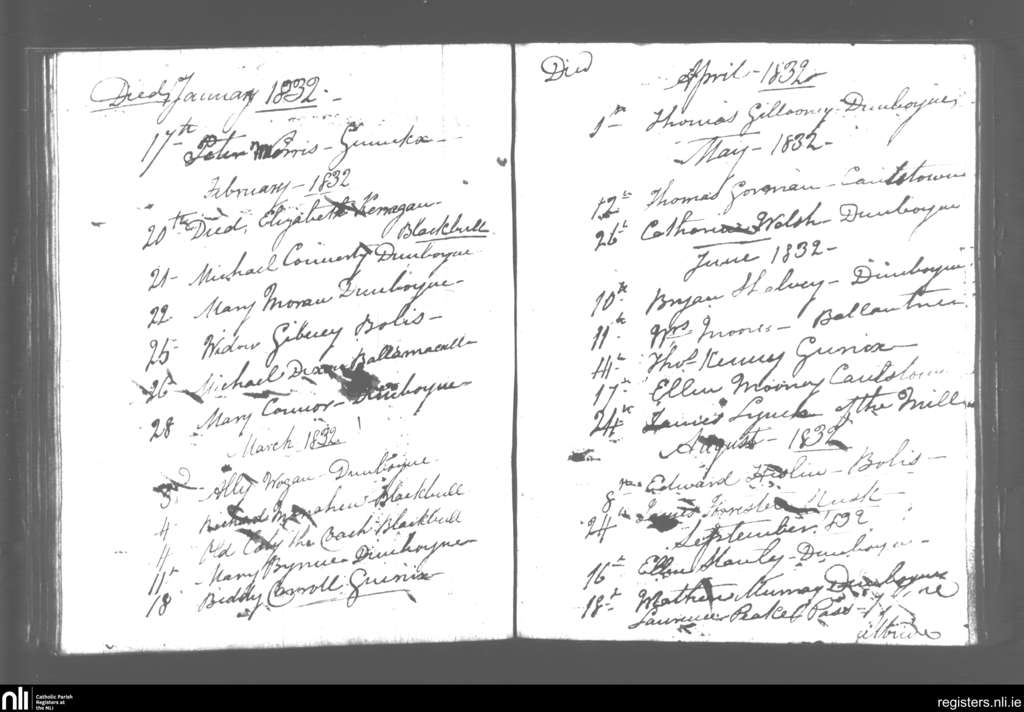 Died, January 1832 -
17th Peter Morris - Gunnkx -
February - 1832
20th Died, Elizabeth Kerragan -
Blackbull
21 - Michael Connerty Dunboyne
22 Mary Moran Dunboyne -
25 - Widow Gibney Bolis -
26 Michael Dixon Ballamacall
28 Mary Connor - Dunboyne
March 1832
3d - Ally Wogan - Dunboyne -
4 Richard Monahan - Blackbull
4 Old Caty the Coach Blackbull
11th Mary Byrne Dunboyne
18 Biddy Carroll Gunix
Died
April - 1832
1st Thomas Gillooney - Dunboyne
May - 1832 -
12th Thomas Gorman - Caulstown
26th Catharine Welsh - Dunboyne
June 1832 -
10th Bryan Halvey - Dunboyne
11th Mrs Moore - Ballantree
14th Thos Kenny Gunix
17th Ellen Mooney Caulstown
24th James Lynch of the Mill
August - 1832
8th Edward - Bolis -
24th James Forrester
September 1832
16th Ellen Stanley - Dunboyne -
18th Mathew Murray Dunboyne
Laurence Pass -
nli
Catholic Parish
Registers at
the NLI
registers.nli.ie